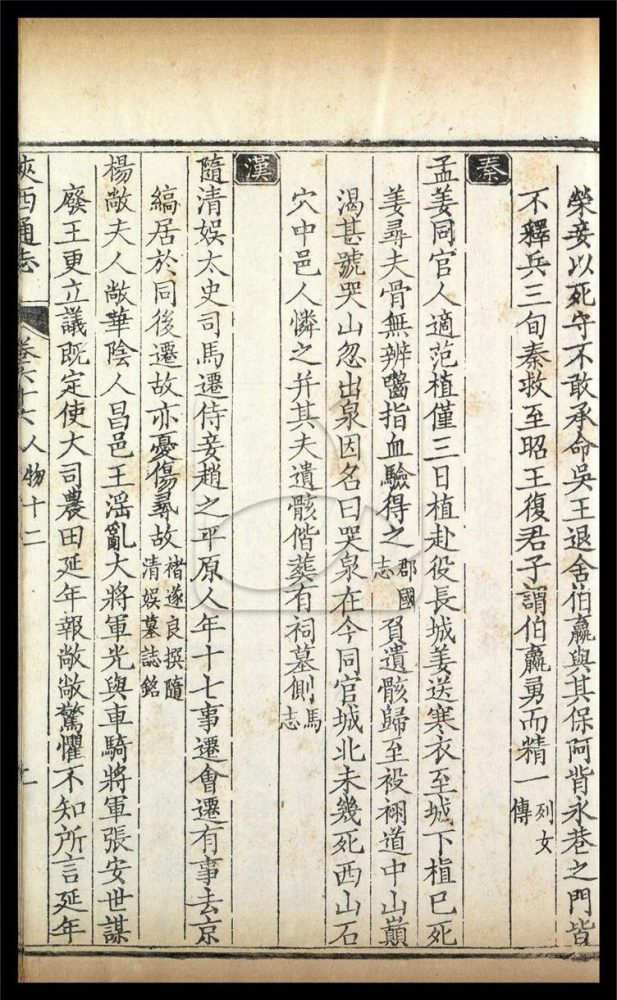 榮妾以死守不敢承命吳王退舍伯嬴與其保阿背永巷之門皆
不釋兵三旬秦救至昭王復君子謂伯嬴勇而精一列女傳
秦
孟姜同官人適范植僅三日植赴役長城姜送寒衣至城下植已死
姜尋夫骨無辨嚙指血驗得之郡國志負遺骸歸至祋祤道中山巔
渴甚號哭山忽出泉因名曰哭泉在今同官城北未幾死西山石
穴中邑人憐之并其夫遺骸偕葬有祠墓側馬志
漢
隨清娛太史司馬遷侍妾趙之平原人年十七事遷會遷有事去京
縞居於同後遷故亦憂傷尋故褚遂良撰隨清娛墓誌銘
楊敞夫人敞華陰人昌邑王淫亂大將軍光與車騎將軍張安世謀
廢王更立議既定使大司農田延年報敞敞驚懼不知所言延年
陝西通志 卷六十六 人物十二